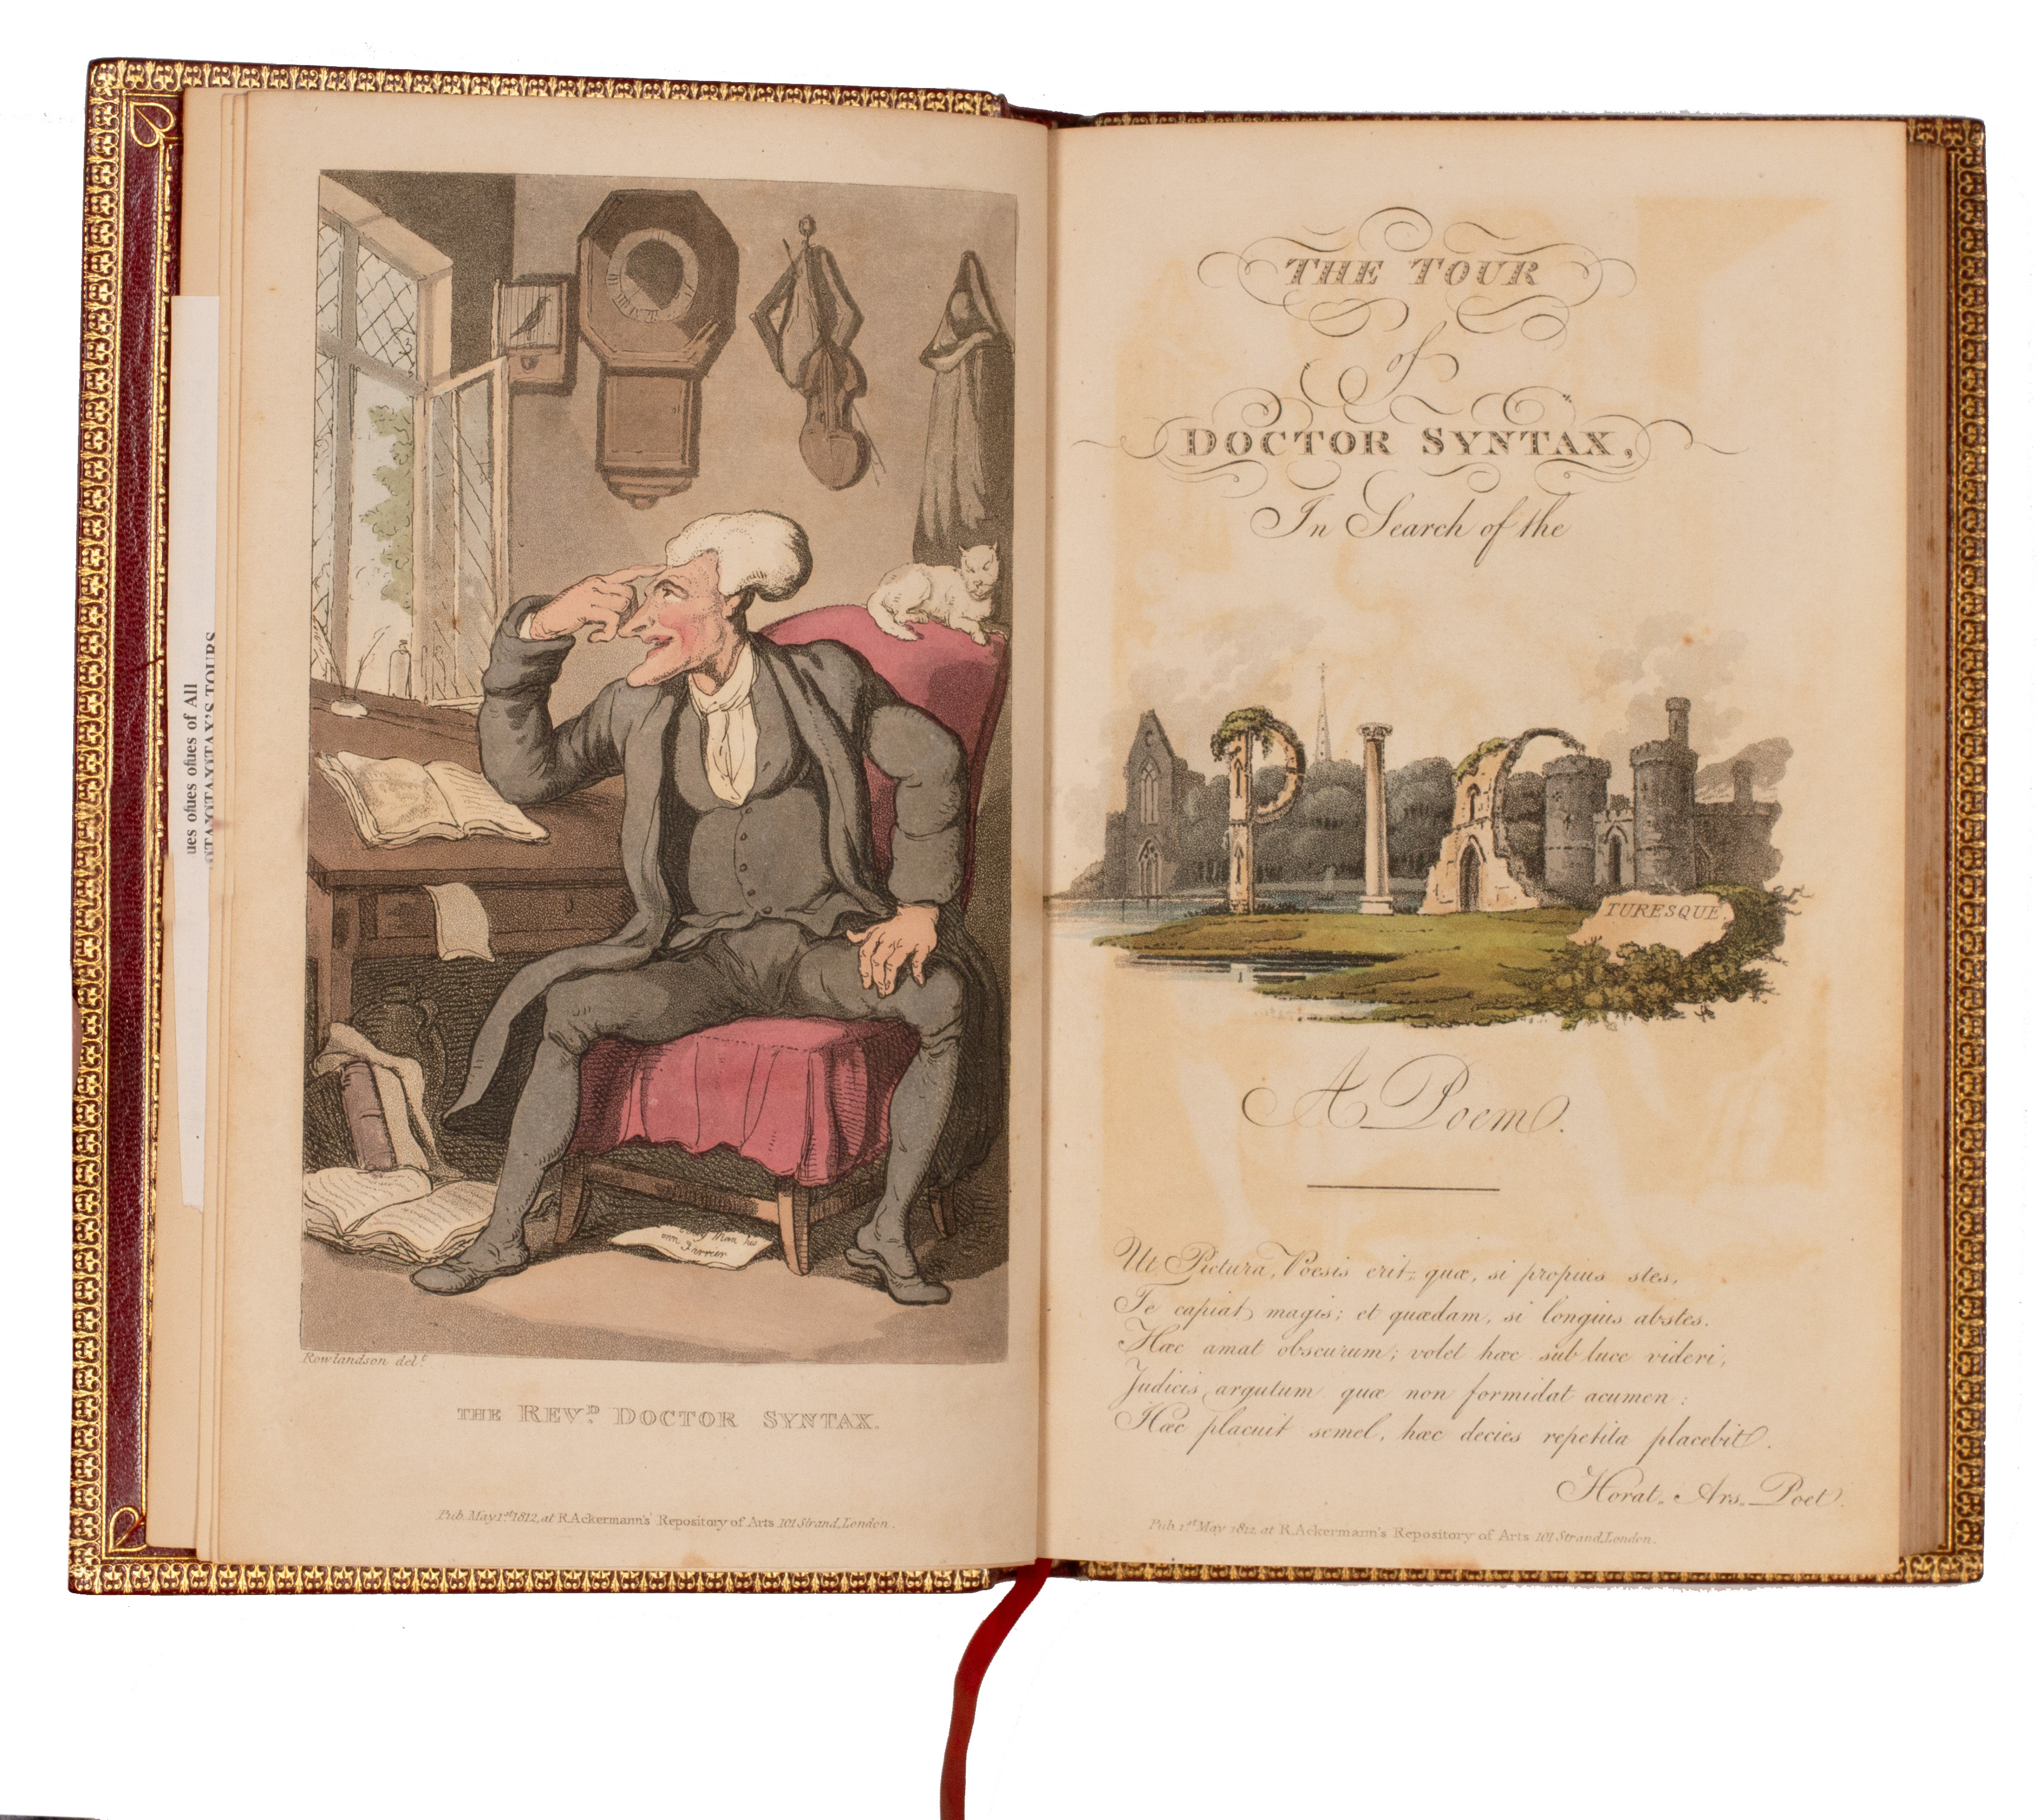 ues of ues of All
Every Man his
own Farrier
Rowlandson delt.
THE REVD. DOCTOR SYNTAX.
Pub. May 1st 1812, at R. Ackermann's Repository of Arts 101 Strand, London.
THE TOUR
of
DOCTOR SYNTAX,
In Search of the
PIC
TURESQUE,
A Poem.
Ut Pictura, Poesis erit; quæ, si propius stes,
Te capiat magis; et quædam, si longius abstes.
Hæc amat obscurum; volet hæc sub luce videri,
Judicis argutum quæ non formidat acumen:
Hæc placuit semel, hæc decies repetita placebit.
Horat. Ars. Poet.
Pub. 1st May 1812 at R. Ackermann's Repository of Arts 101 Strand, London.